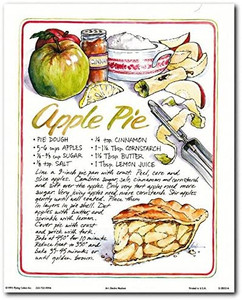 Apple Pie
• PIE DOUGH
• 5-6 CUPS APPLES
• ½-⅔ CUP SUGAR
• ⅛ TSP. SALT
• ¼ TSP. CINNAMON
• 1-1½ TBSP. CORNSTARCH
• 1½ TBSP. BUTTER
• 1 TBSP. LEMON JUICE
Line a 9-inch pie pan with crust. Peel, core and
slice apples. Combine sugar, salt, cinnamon and cornstarch
and sift over the apples. Only very tart apples need more
sugar. Very juicy apples need more cornstarch. Stir apples
gently until well coated. Place them
in layers in pie shell. Dot
apples with butter and
sprinkle with lemon.
Cover pie with crust
and prick with fork.
Bake at 450° for 10 minutes.
Reduce heat to 350° and
bake 35-45 minutes, or
until golden brown.